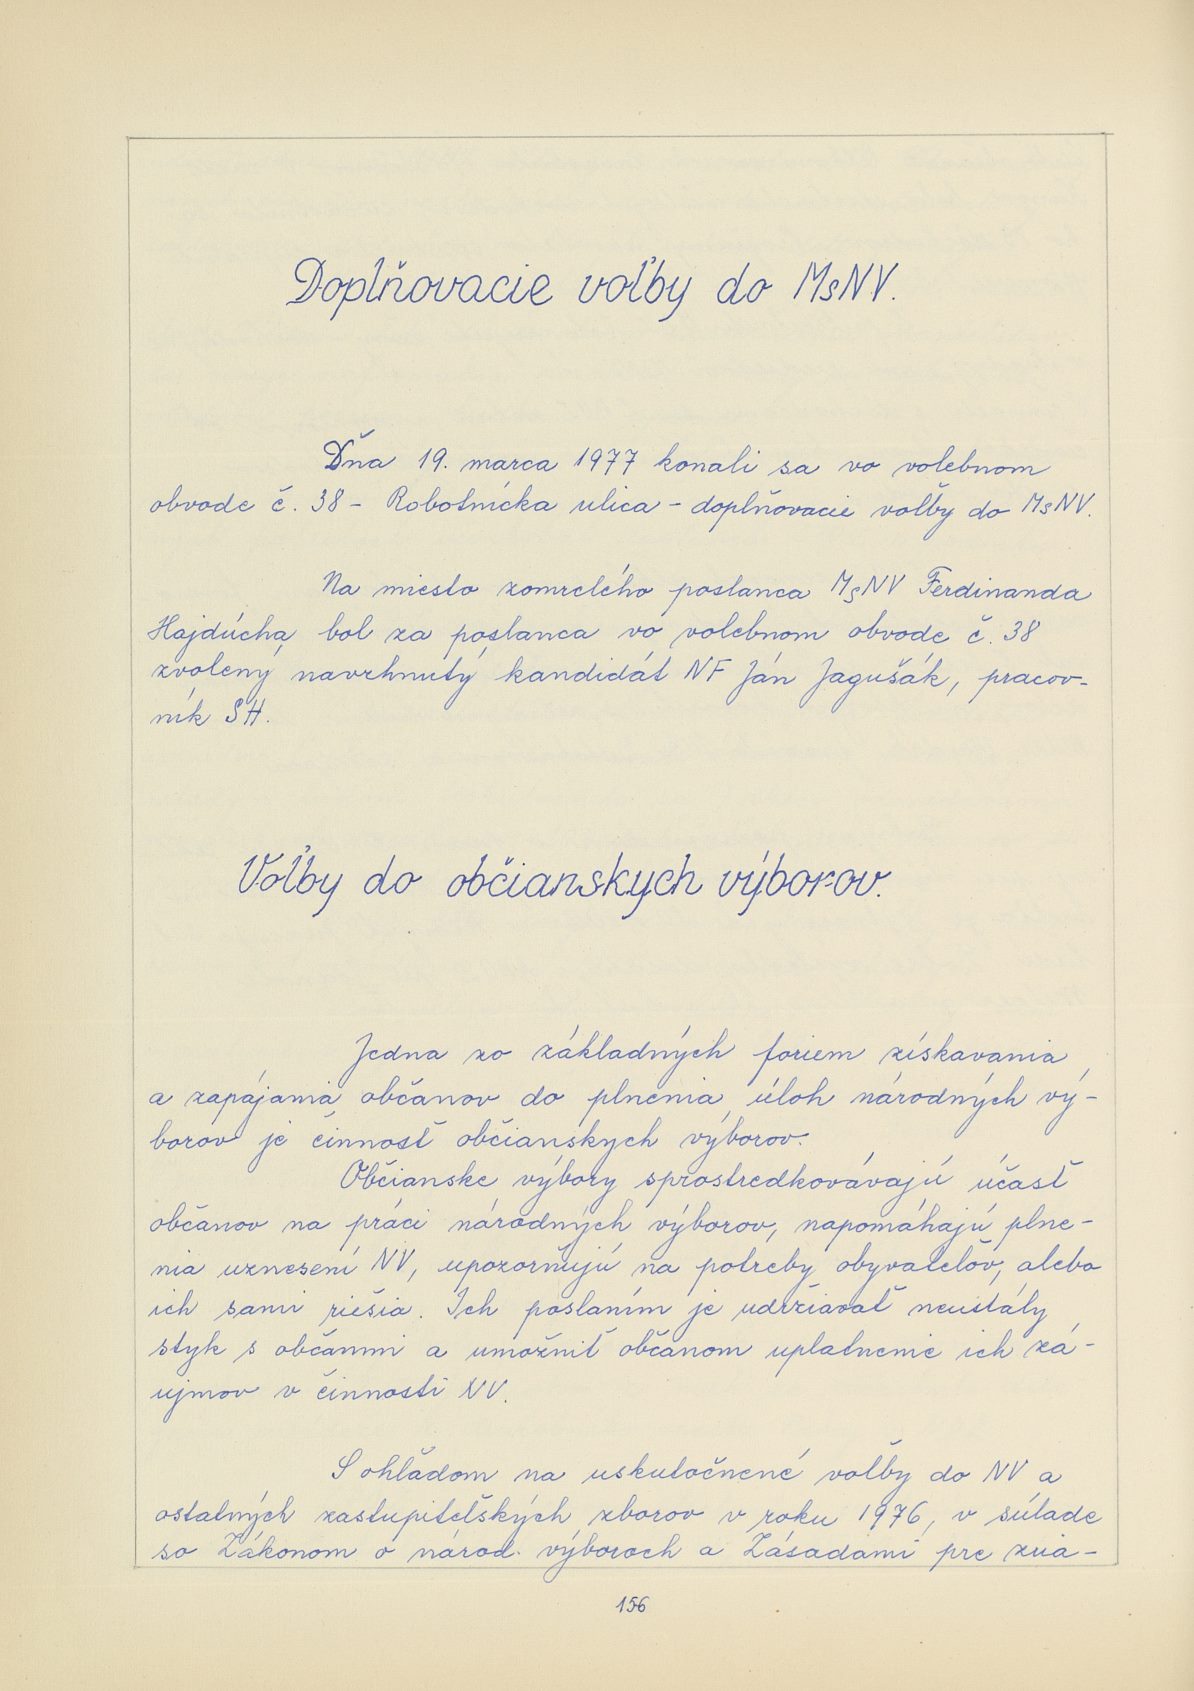 Doplňovacie voľby do MsNV.
Dňa 19. marca 1977 konali sa vo volebnom
obvode č. 38 – Robotnícka ulica – doplňovacie voľby do MsNV.
Na miesto zomrelého poslanca MsNV Ferdinanda
Hajdúcha, bol za poslanca vo volebnom obvode č. 38
zvolený navrhnutý kandidát NF Ján Jagušák, pracov-
ník SH.
Voľby do občianskych výborov.
Jedna zo základných foriem získavania
a zapájania občanov do plnenia úloh národných vý-
borov je činnosť občianskych výborov.
Občianske výbory sprostredkovávajú účasť
občanov na práci národných výborov, napomáhajú plne-
nia uznesení NV, upozorňujú na potreby obyvateľov, alebo
ich sami riešia. Ich poslaním je udržiavať neustály
styk s občanmi a umožniť občanom uplatnenie ich zá-
ujmov v činnosti NV.
S ohľadom na uskutočnené voľby do NV a
ostatných zastupiteľských zborov v roku 1976, v súlade
so Zákonom o národ. výboroch a Zásadami pre zria-
156